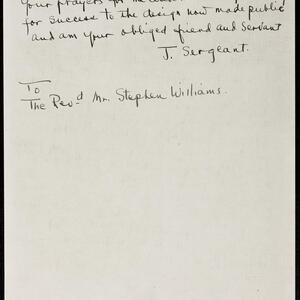 your prayers for me
for success to the design now made public
and am your obliged friend and servant
J. Sergeant.
To
The Revd Mr. Stephen Williams.